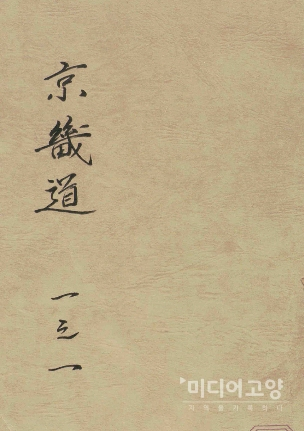 京畿道
一之一
미디어고양